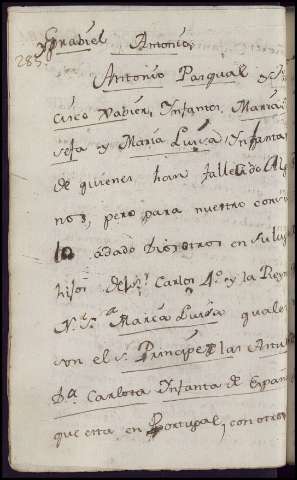 Grabiel Antonio,
283.
Antonio Pasqual y
cisco Xabier, Infantes, Maria
sefa y Maria Luisa, Infanta
de quienes han fallecido Al
nos, pero para nuestro cons
lo a dado Dios otros en su lu
hijos del Sr. Carlos 4º y la Reyn
N.ª S.ª Maria Luisa quale
son el s. Principe de las Astu
D.ª Carlota Infanta de Españ
que esta en Portugal, con otros